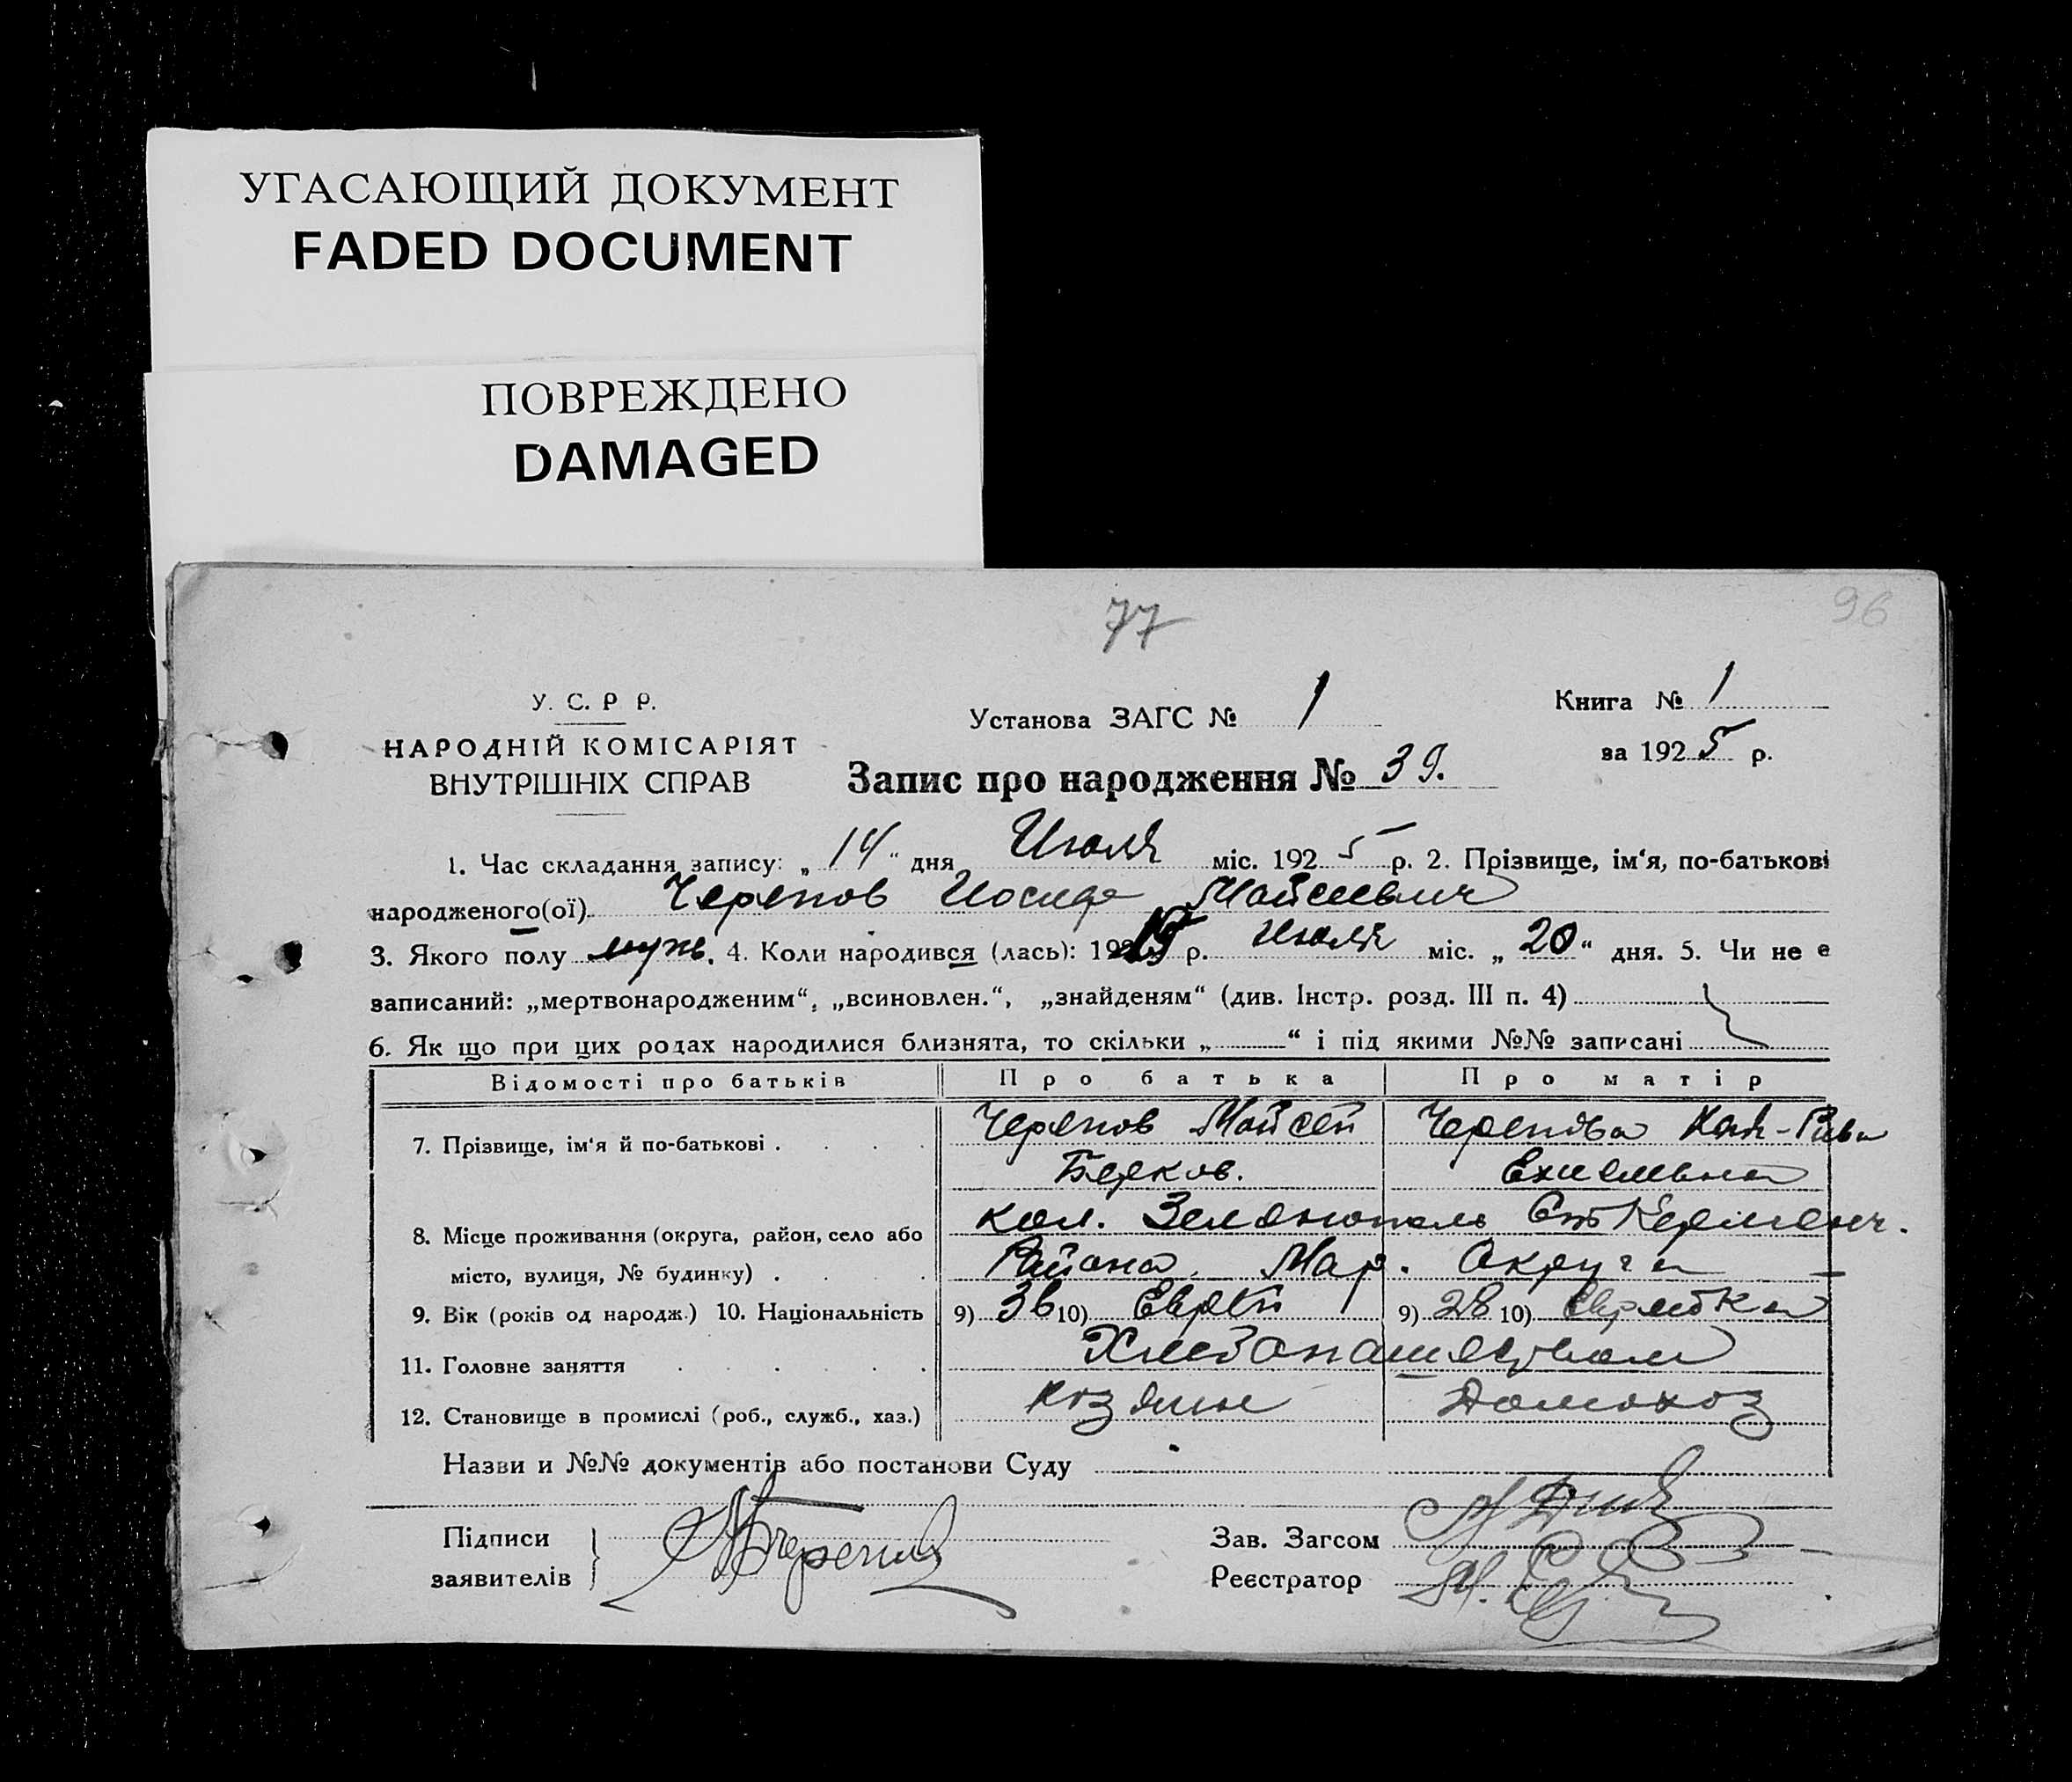 УГАСАЮЩИЙ ДОКУМЕНТ
FADED DOCUMENT
ПОВРЕЖДЕНО
DAMAGED
77
96
У. С. Р Р.
НАРОДНІЙ КОМІСАРІЯТ
ВНУТРІШНІХ СПРАВ
Установа ЗАГС № 1
Книга № 1
за 1925 р.
Запис про народження № 39.
1. Час складання запису: „14“ дня Июля міс. 1925 р. 2. Прізвище, ім‘я, по-батькові
народженого(ої) Черепов Иосиф Мойсеевич
3. Якого полу муж. 4. Коли народився (лась): р. Июля міс. „20“ дня. 5. Чи не е
записаний: „мертвонародженим“, „всиновлен.“, „знайденям“ (див. Інстр. розд. III п. 4)
6. Як що при цих родах народилися близнята, то скільки „ “ і під якими №№ записані
Відомості про батьків Про батька Про матір
7. Прізвище, ім‘я й по-батькові . Черепов Мойсей Черепова Хая-Рива
Берков. Ехиелевна
8. Місце проживання (округа, район, село або кол. Зеленополь Керменч.
місто, вулиця, № будинку) . Района, Мар. Округа
9. Вік (років од народж.) 10. Національність 9) 36 10) Еврей 9) 28 10) Еврейка
11. Головне заняття Хлебопашеством
12. Становище в промислі (роб., служб., хаз.) хозяин Домохоз
Назви и №№ документів або постанови Суду
Підписи
заявителів
Зав. Загсом
Реєстратор